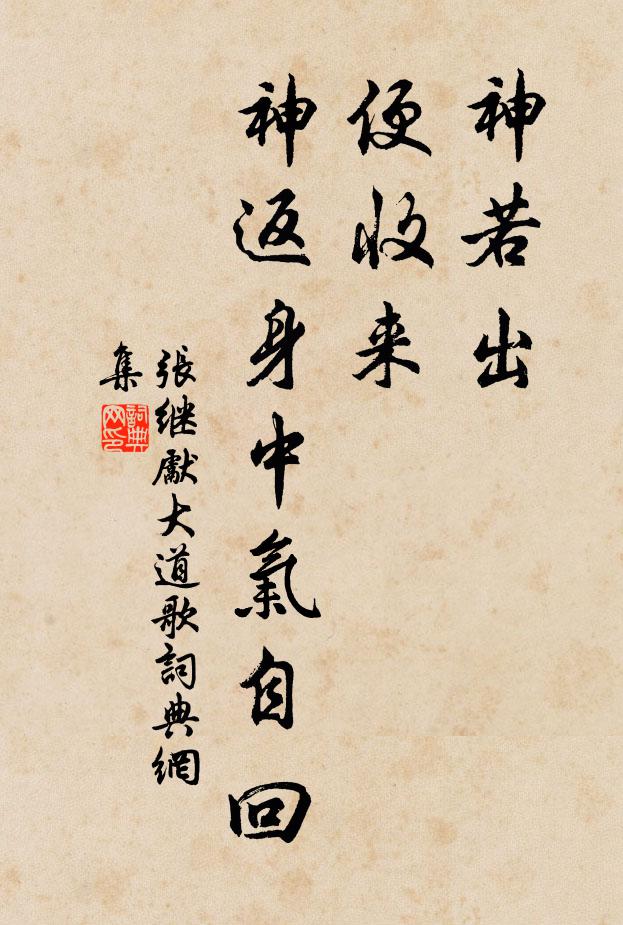 神若出
便收来
神返身中氣自回
張继獻大道歌詞典網
集
詞典
网印